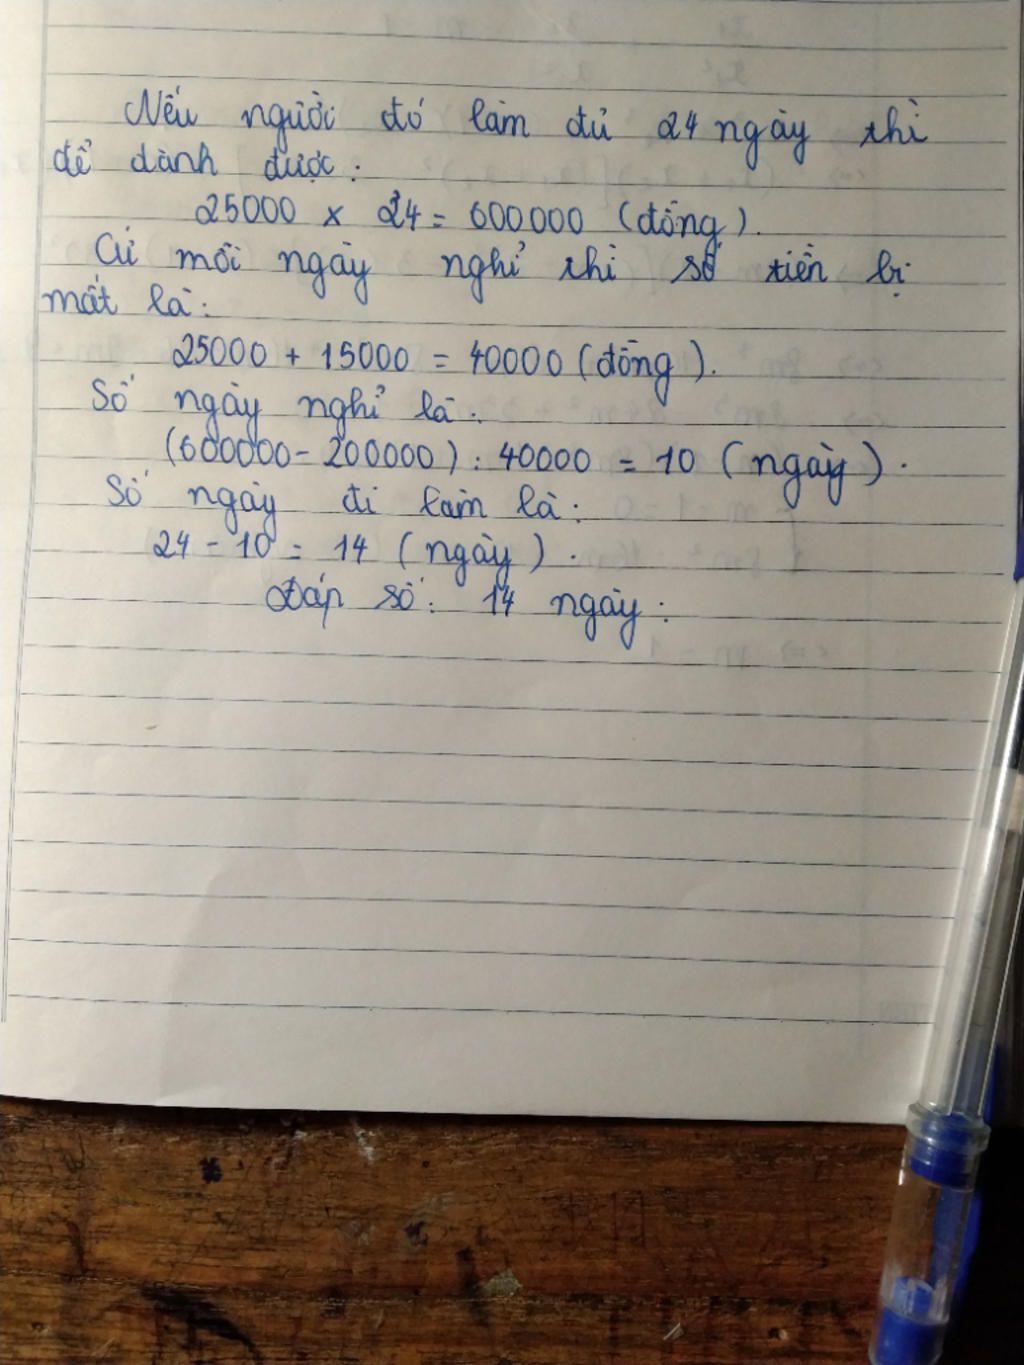 Nếu người đó làm đủ 24 ngày thì
để dành được:
25000 x 24 = 600000 (đồng).
Cứ mỗi ngày nghỉ thì số tiền bị
mất là:
25000 + 15000 = 40000 (đồng).
Số ngày nghỉ là:
(600000 - 200000) : 40000 = 10 (ngày).
Số ngày đi làm là:
24 - 10 = 14 (ngày).
Đáp số: 14 ngày.